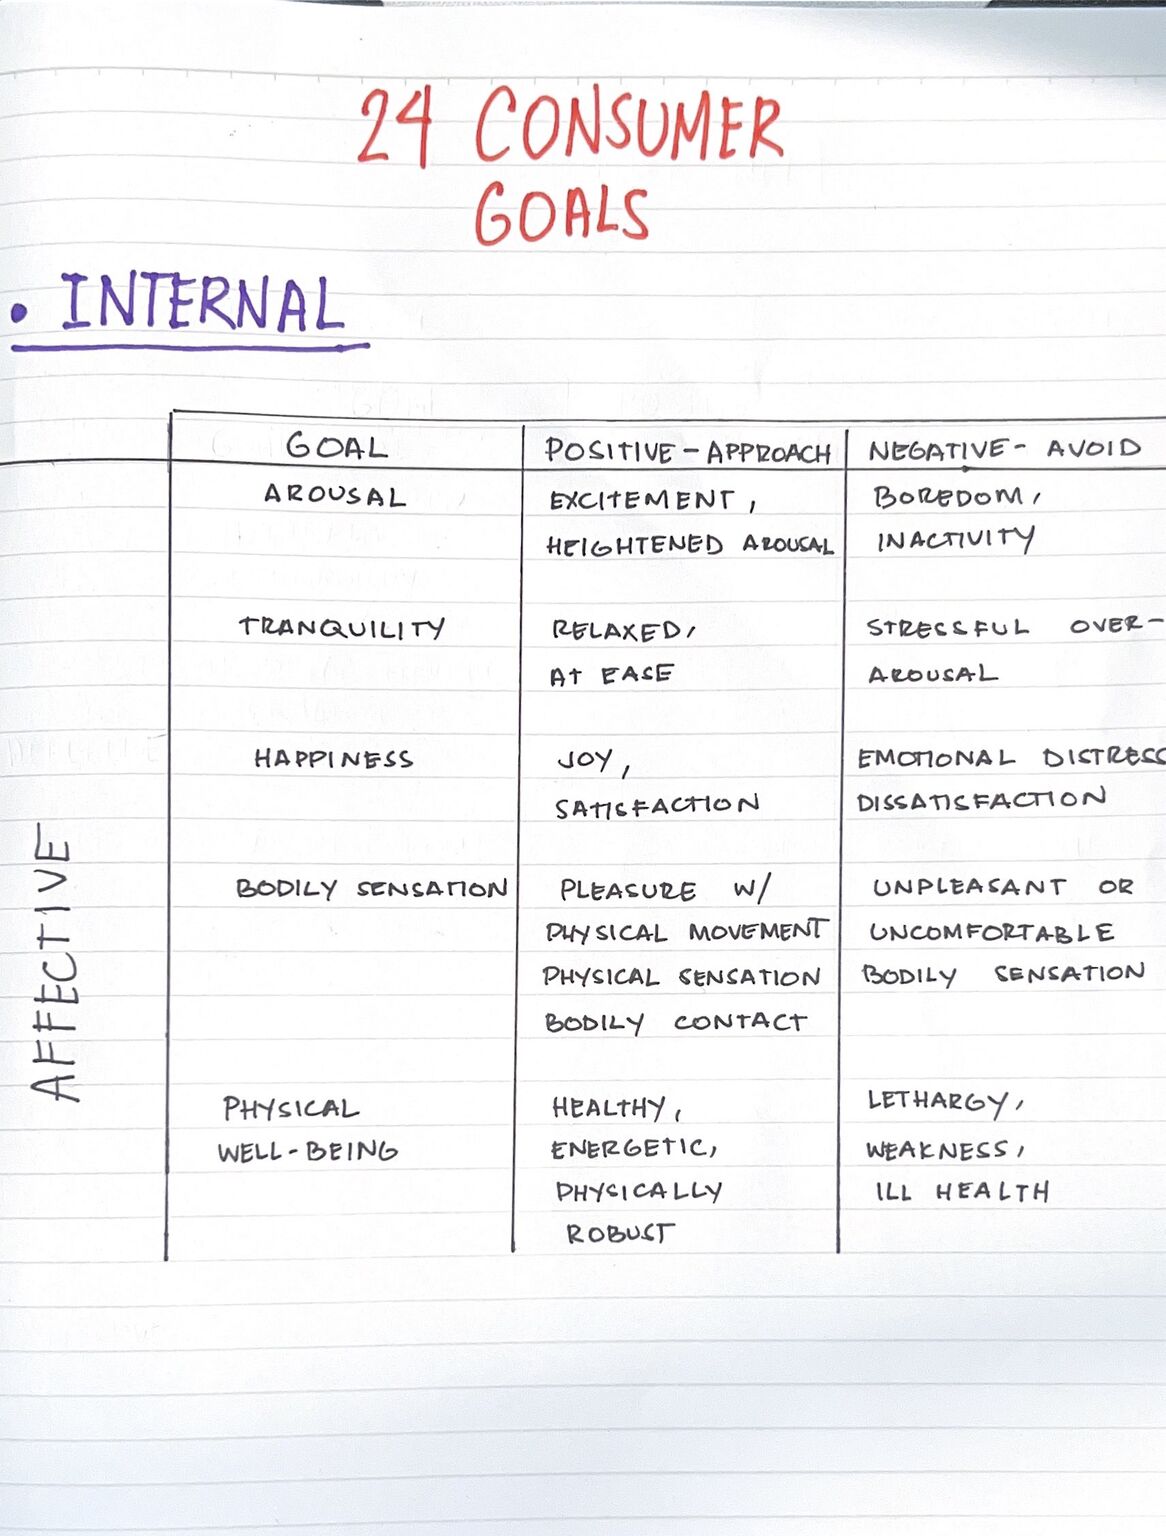 24 CONSUMER
GOALS
• INTERNAL
GOAL POSITIVE-APPROACH NEGATIVE-AVOID
AFFECTIVE
AROUSAL EXCITEMENT, BOREDOM,
HEIGHTENED AROUSAL INACTIVITY
TRANQUILITY RELAXED, STRESSFUL OVER-
AT EASE AROUSAL
HAPPINESS JOY, EMOTIONAL DISTRESS
SATISFACTION DISSATISFACTION
BODILY SENSATION PLEASURE W/ UNPLEASANT OR
PHYSICAL MOVEMENT UNCOMFORTABLE
PHYSICAL SENSATION BODILY SENSATION
BODILY CONTACT
PHYSICAL HEALTHY, LETHARGY,
WELL-BEING ENERGETIC, WEAKNESS,
PHYSICALLY ILL HEALTH
ROBUST